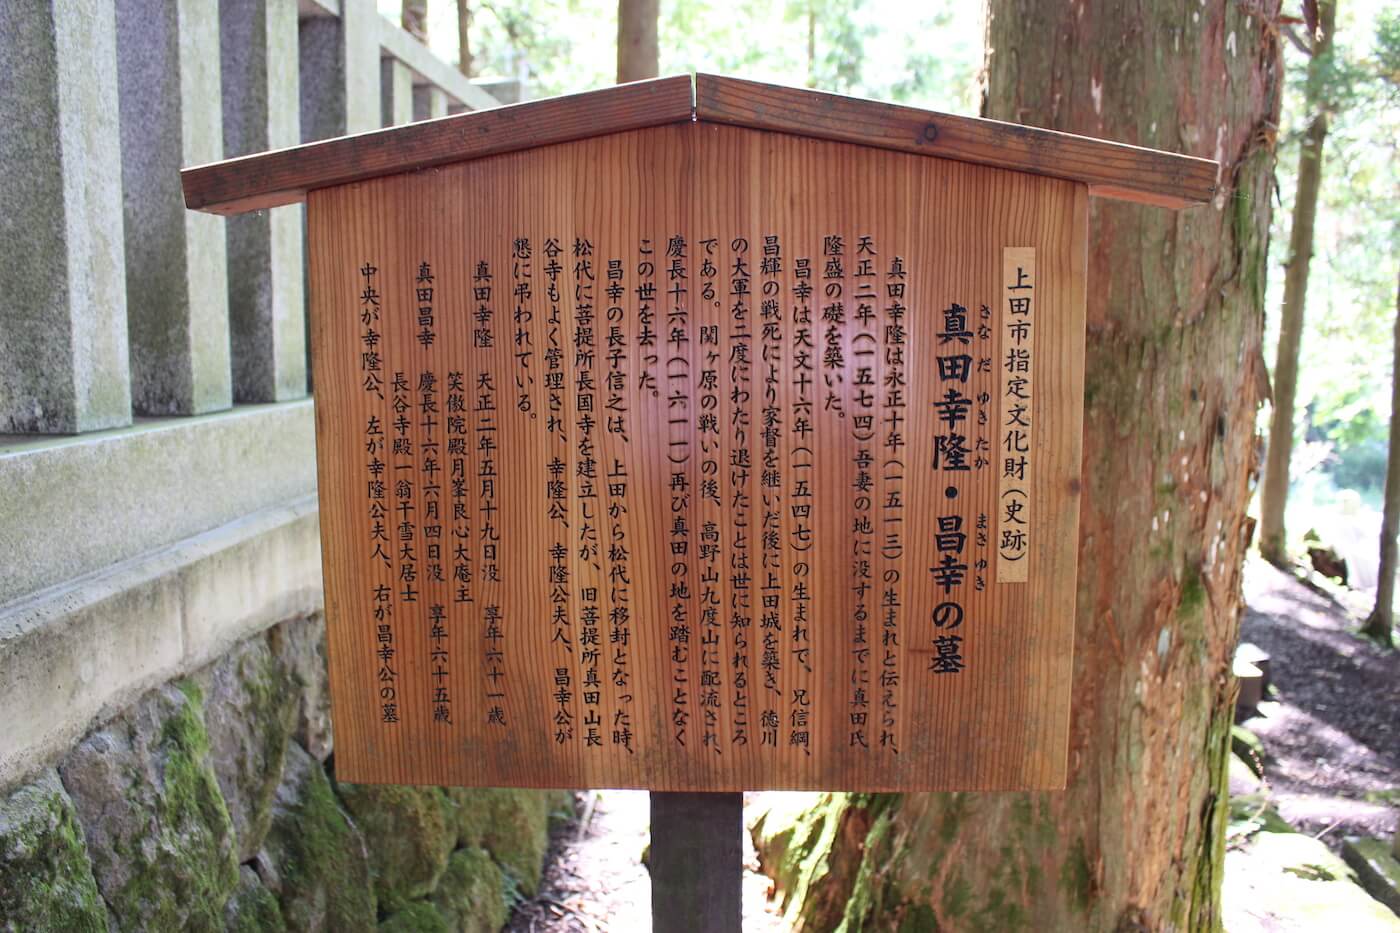 上田市指定文化財（史跡）
さなだゆきたか　まさゆき
真田幸隆・昌幸の墓
真田幸隆は永正十年（一五一三）の生まれと伝えられ、
天正二年（一五七四）吾妻の地に没するまでに真田氏
隆盛の礎を築いた。
昌幸は天文十六年（一五四七）の生まれで、兄信綱、
昌輝の戦死により家督を継いだ後に上田城を築き、徳川
の大軍を二度にわたり退けたことは世に知られるところ
である。関ヶ原の戦いの後、高野山九度山に配流され、
慶長十六年（一六一一）再び真田の地を踏むことなく
この世を去った。
昌幸の長子信之は、上田から松代に移封となった時、
松代に菩提所長国寺を建立したが、旧菩提所真田山長
谷寺もよく管理され、幸隆公、幸隆公夫人、昌幸公が
懇に弔われている。
真田幸隆　天正二年五月十九日没　享年六十一歳
笑傲院殿月峯良心大庵主
真田昌幸　慶長十六年六月四日没　享年六十五歳
長谷寺殿一翁干雪大居士
中央が幸隆公、左が幸隆公夫人、右が昌幸公の墓